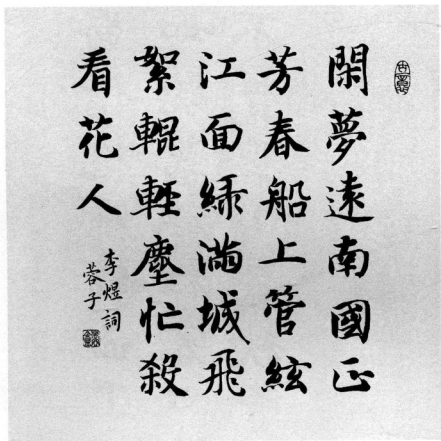 閑夢遠南國正
芳春船上管絃
江面綠滿城飛
絮輥輕塵忙殺
看花人
李煜詞
蓉子